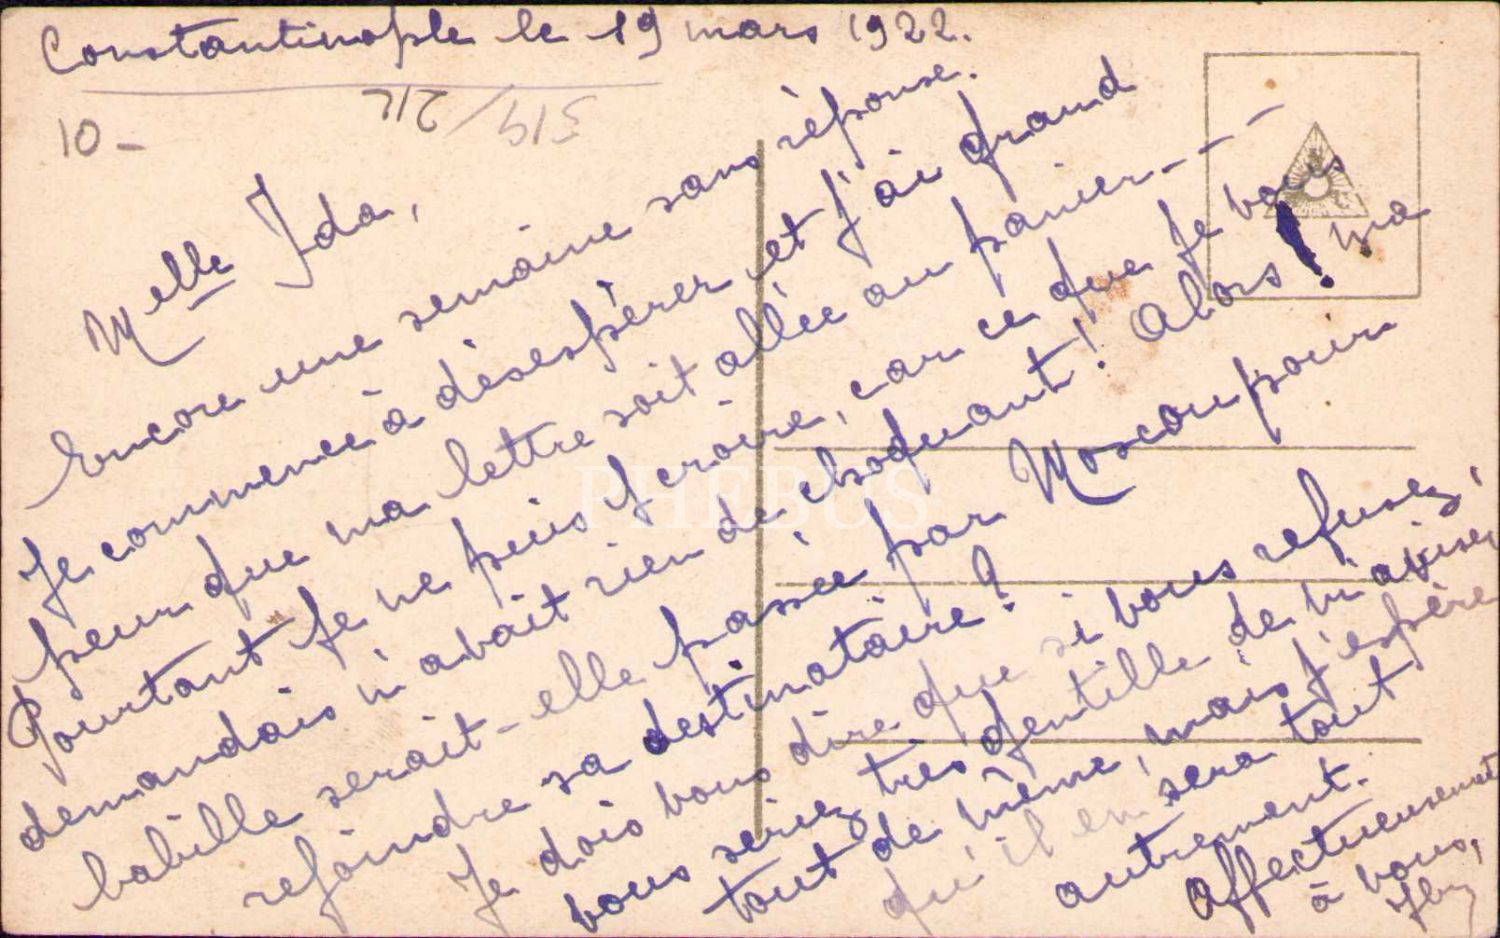 Constantinople le 19 mars 1922.
10 -
212/319
Melle Ida,
Encore une semaine sans réponse.
Je commence à désespérer et j'ai grand
peur que ma lettre soit allée au panier - - -
Pourtant je ne puis y croire, car ce que je vous
demandais n'avait rien de choquant! Alors! ma
babille serait-elle passée par Moscou pour
rejoindre sa destinataire?
Je dois vous dire que si vous refusez,
vous seriez très gentille de m'aviser
tout de même, mais j'espère
qu'il en sera tout
autrement.
Affectueusement
à vous,
PHEBUS